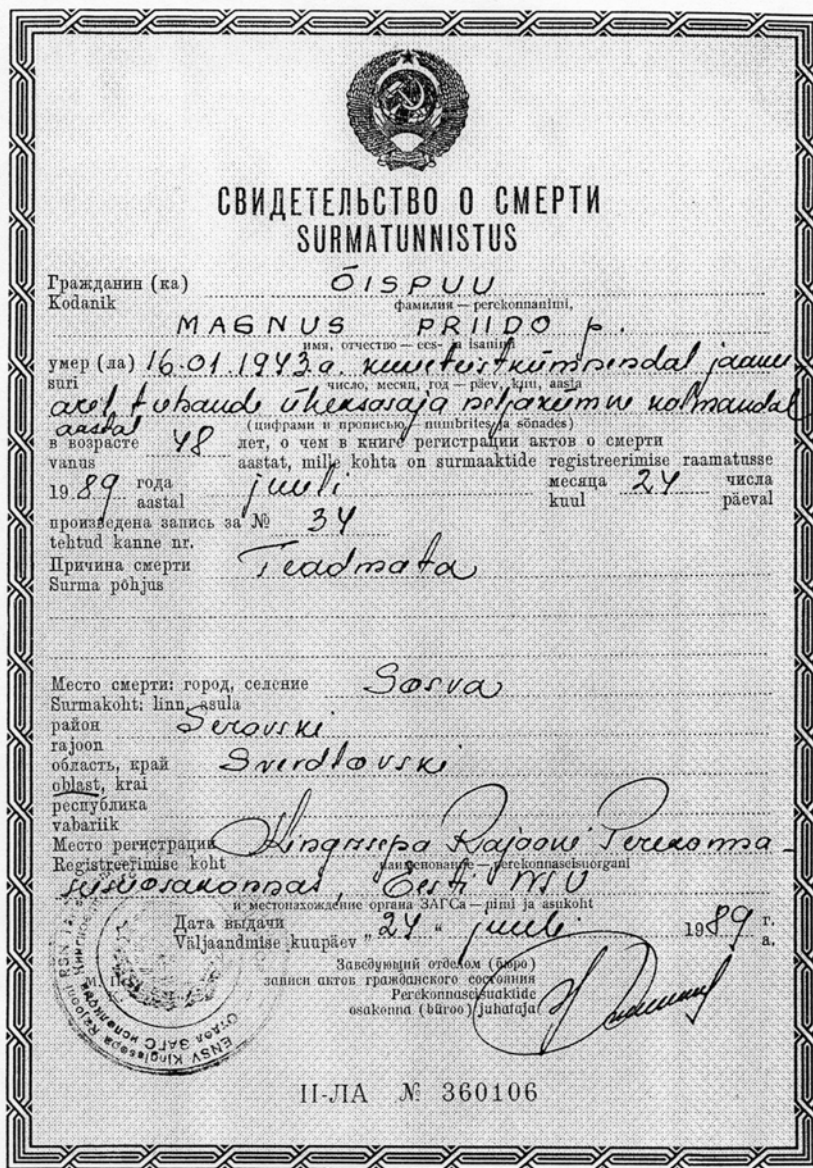 СВИДЕТЕЛЬСТВО О СМЕРТИ
SURMATUNNISTUS
Гражданин (ка) ÕISPUU
Kodanik фамилия — perekonnanimi,
MAGNUS PRIIDO p.
имя, отчество — ees- ja isanimi
умер (ла) 16.01.1943.a. kuueteistkümnendal jaanu-
suri число, месяц, год — päev, kuu, aasta
aril tuhande üheksasaja neljakümne kolmandal
aastal (цифрами и прописью, numbrites ja sõnades)
в возрасте 48 лет, о чем в книге регистрации актов о смерти
vanus aastat, mille kohta on surmaaktide registreerimise raamatusse
1989 года juuli месяца 24 числа
aastal kuul päeval
произведена запись за № 34
tehtud kanne nr.
Причина смерти Teadmata
Surma põhjus
Место смерти: город, селение Sosva
Surmakoht: linn, asula
район Serovski
rajoon
область, край Sverdlovski
oblast, krai
республика
vabariik
Место регистрации Kingissepa Rajooni Perekonna-
Registreerimise koht наименование — perekonnaseisuorgani
seisuosakonnas, Eesti NSV
и местонахождение органа ЗАГСа — nimi ja asukoht
Дата выдачи „24“ juuli 1989 г.
Väljaandmise kuupäev a.
Заведующий отделом (бюро)
записи актов гражданского состояния
Perekonnaseisuaktide
osakonna (büroo) juhataja
М. П.
ENSV Kingissepa Rajooni RSN
Отдел ЗАГС
II-ЛА № 360106